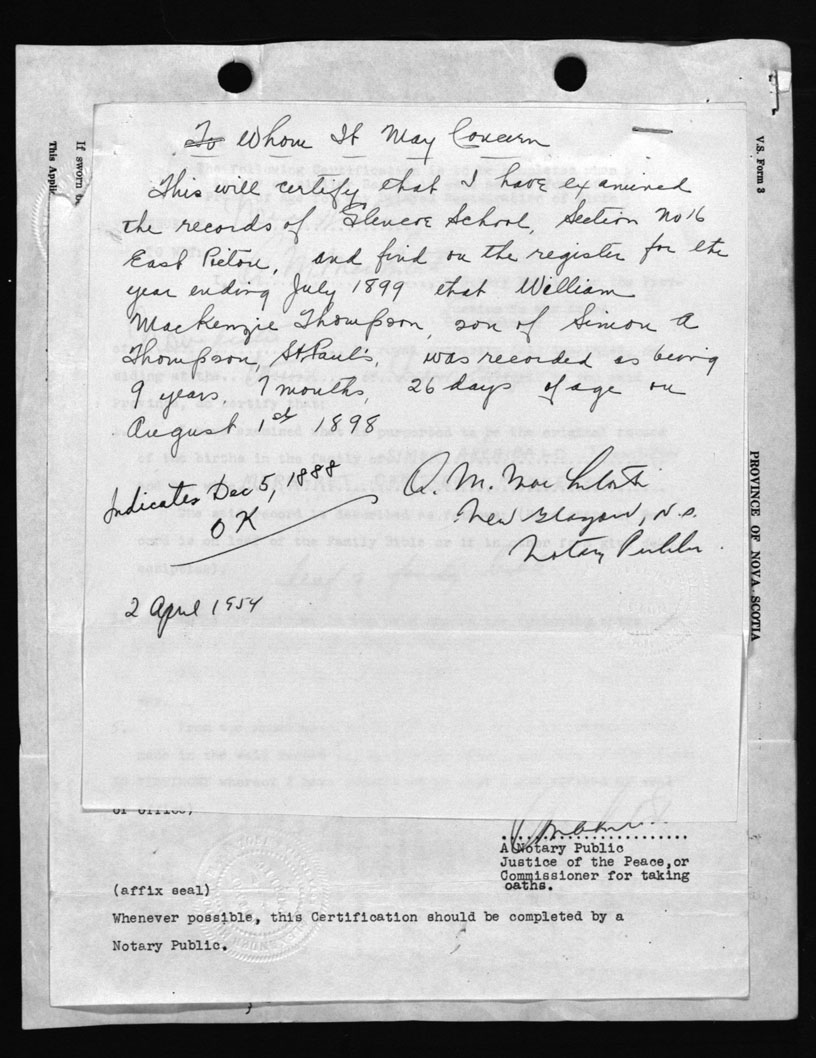 To Whom It May Concern
This will certify that I have examined
the records of Glencoe School, Section No 16
East Pictou, and find on the register for the
year ending July 1899 that William
MacKenzie Thompson, son of Simon A
Thompson, St Paul's, was recorded as being
9 years, 7 months, 26 days of age on
August 1st 1898
Indicates Dec 5, 1888
OK
A. M.
New Glasgow, N.S.
Notary Public.
2 April 1954
If sworn
This Appli
V.S. Form 3
PROVINCE OF NOVA SCOTIA
of office,
A Notary Public
Justice of the Peace, or
Commissioner for taking
oaths.
(affix seal)
Whenever possible, this Certification should be completed by a
Notary Public.